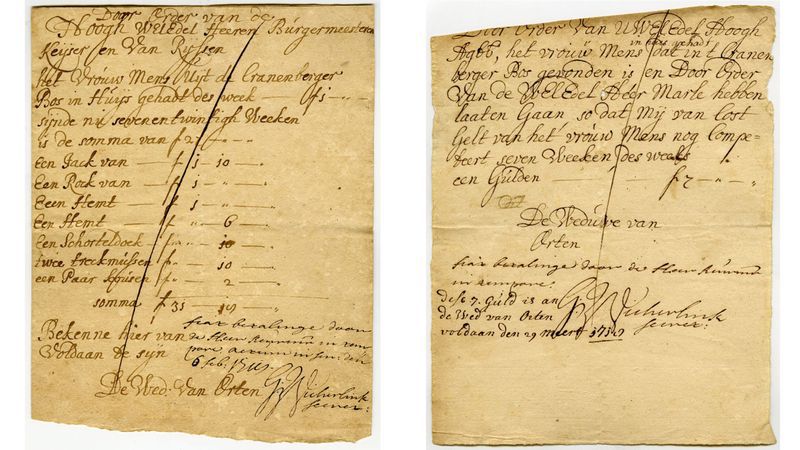 Door Order van de
Hoogh WelEdel Heeren Burgermeesteren
Keijser en Van Ryssen
het Vrouw Mens Uijt de Cranenberger
Bos in Huijs gehadt des week — f 1 „
sijnde nu sevenentwintigh Weeken
is de somma van f 27 „ — „
Een Jack van — f 1 — 10 — „
Een Rock van — f 1 — „ — „
Eeen Hemt — f 1 — „ — „
Een Hemt — f „ — 6 — „
Een Schorteldoek — f „ — 10 — „
twee treckmussen f „ — 10 — „
een Paar Housen — f „ — 2 — „
somma f 31 — 19
Bekenne hier van
Voldaan te syn
fiat betalinge door
de Heer
6 feb:
De Wed: Van Orten
Door Order Van UWelEdel Hoogh
Agbb, het vrouw Mens in huis gehadt dat in t Cranen
berger Bos gevonden is en Door Order
Van de WelEdel Heer Marle hebben
laaten Gaan so dat Mij van Cost
Gelt van het vrouw Mens nog Compe-
teert seven Weeken des weeks
een Gulden — f 7 — „ — „
De Weduwe van
Orten
fiat betalinge door de Heer
in tempore
dese 7. Guld is an
de Wed van Orten
voldaan den 29 meert